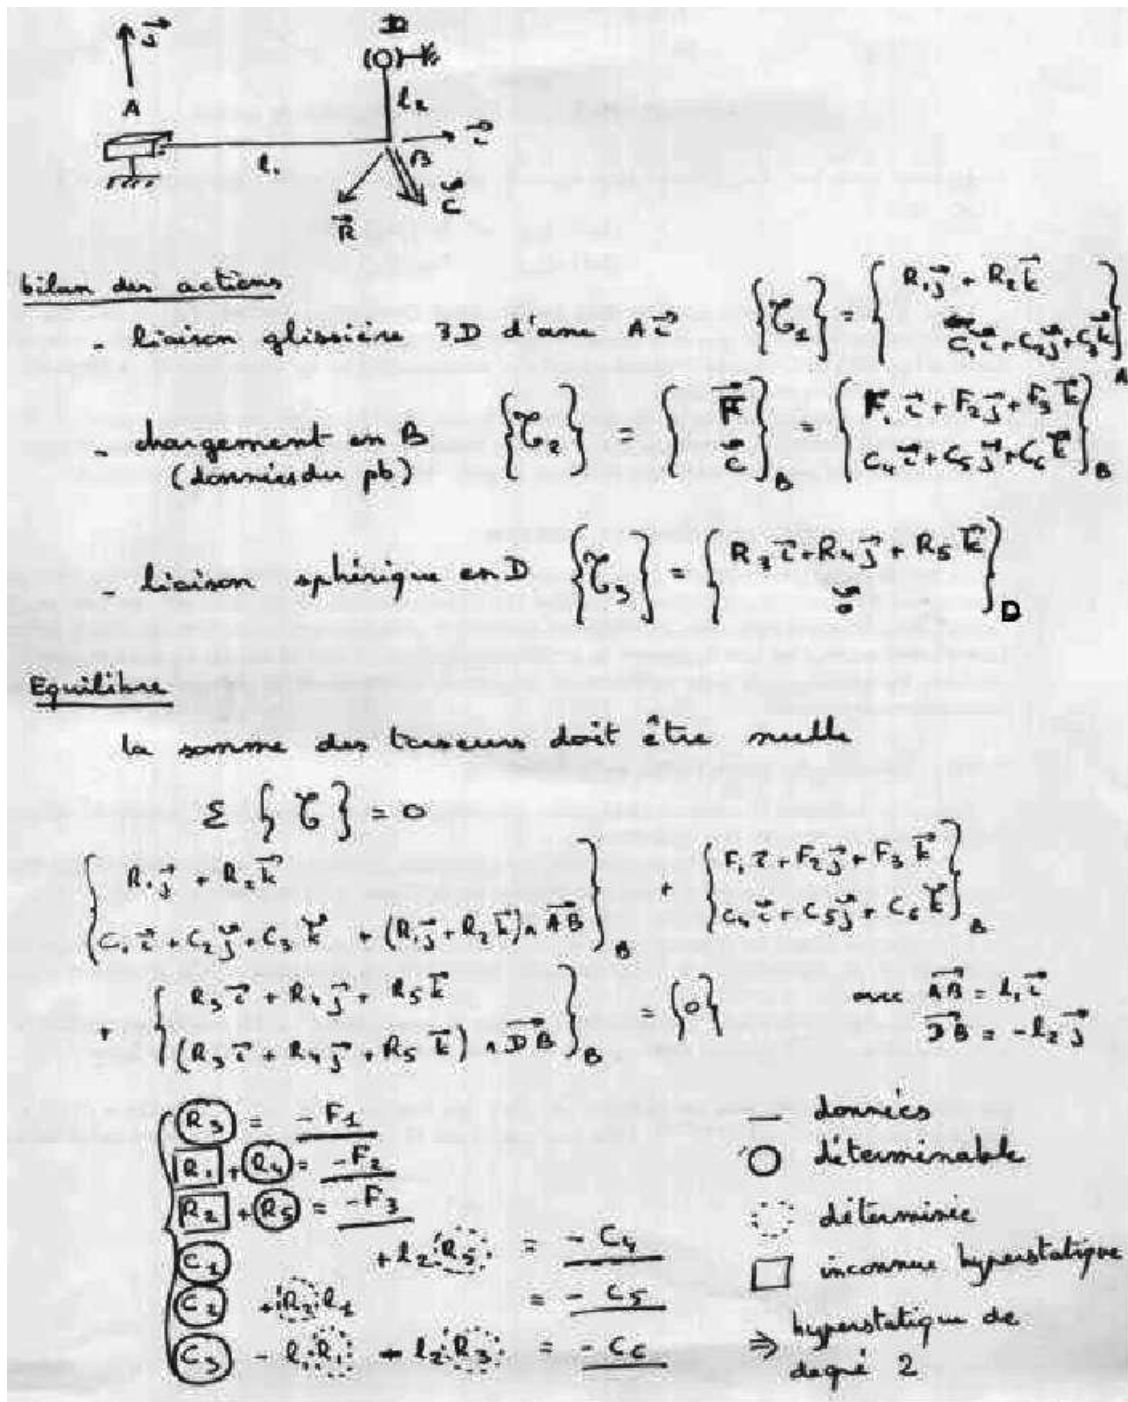 j⃗
D
A
l₂
i⃗
l₁
B
R⃗
C⃗
bilan des actions
- liaison glissière 3D d'axe A i⃗ {𝒯₁} = { R₁j⃗ + R₂k⃗ / C₁i⃗ + C₂j⃗ + C₃k⃗ }A
- chargement en B {𝒯₂} = { F⃗ / C⃗ }B = { F₁i⃗ + F₂j⃗ + F₃k⃗ / C₄i⃗ + C₅j⃗ + C₆k⃗ }B
(données du pb)
- liaison sphérique en D {𝒯₃} = { R₃i⃗ + R₄j⃗ + R₅k⃗ / 0⃗ }D
Equilibre
la somme des torseurs doit être nulle
Σ {𝒯} = 0
{ R₁j⃗ + R₂k⃗ / C₁i⃗ + C₂j⃗ + C₃k⃗ + (R₁j⃗ + R₂k⃗) ∧ AB⃗ }B + { F₁i⃗ + F₂j⃗ + F₃k⃗ / C₄i⃗ + C₅j⃗ + C₆k⃗ }B
+ { R₃i⃗ + R₄j⃗ + R₅k⃗ / (R₃i⃗ + R₄j⃗ + R₅k⃗) ∧ DB⃗ }B = {0} avec AB⃗ = l₁i⃗
DB⃗ = -l₂j⃗
R₃ = -F₁
R₁ + R₄ = -F₂
R₂ + R₅ = -F₃
C₁ + l₂ R₅ = -C₄
C₂ + R₂ l₁ = -C₅
C₃ - l₁ R₁ - l₂ R₃ = -C₆
— données
○ déterminable
◌ déterminée
□ inconnue hyperstatique
⇒ hyperstatique de
degré 2